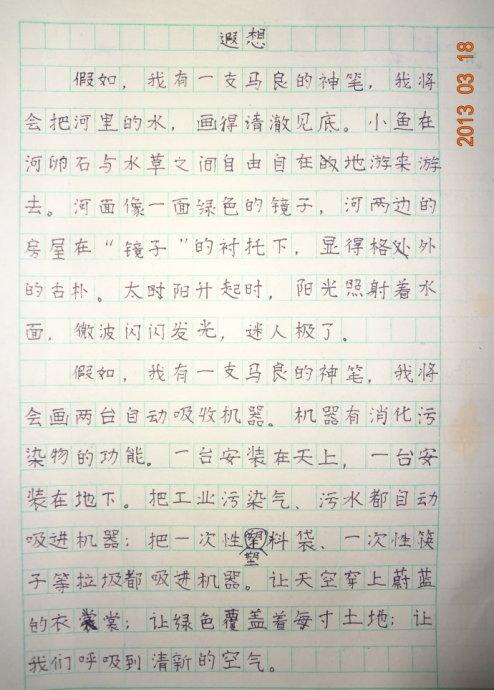 遐想
假如，我有一支马良的神笔，我将
会把河里的水，画得清澈见底。小鱼在
河卵石与水草之间自由自在的地游来游
去。河面像一面绿色的镜子，河两边的
房屋在“镜子”的衬托下，显得格外
的古朴。太时阳升起时，阳光照射着水
面，微波闪闪发光，迷人极了。
假如，我有一支马良的神笔，我将
会画两台自动吸收机器。机器有消化污
染物的功能。一台安装在天上，一台安
装在地下。把工业污染气、污水都自动
吸进机器；把一次性塑料袋、一次性筷
子等垃圾都吸进机器。让天空穿上蔚蓝
的衣裳；让绿色覆盖着每寸土地；让
我们呼吸到清新的空气。
2013 03 18